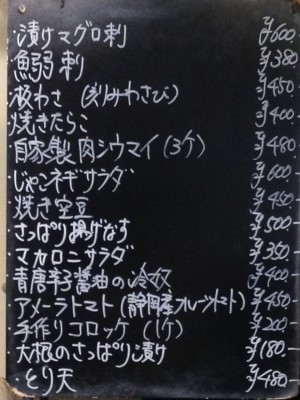 ・漬けマグロ刺 ¥600-
・魚弱刺 ¥380
・板わさ (刻みわさび) ¥450-
・焼きたらこ ¥400-
・自家製肉シウマイ (3ケ) ¥480
・じゃこネギサラダ ¥600-
・焼き空豆 ¥450-
・さっぱり揚げなす ¥500-
・マカロニサラダ ¥350-
・青唐辛子醤油の冷奴 ¥400-
・アメーラトマト (静岡産フルーツトマト) ¥450-
・手作りコロッケ (1ケ) ¥200-
・大根のさっぱり漬け ¥180-
・とり天 ¥480-